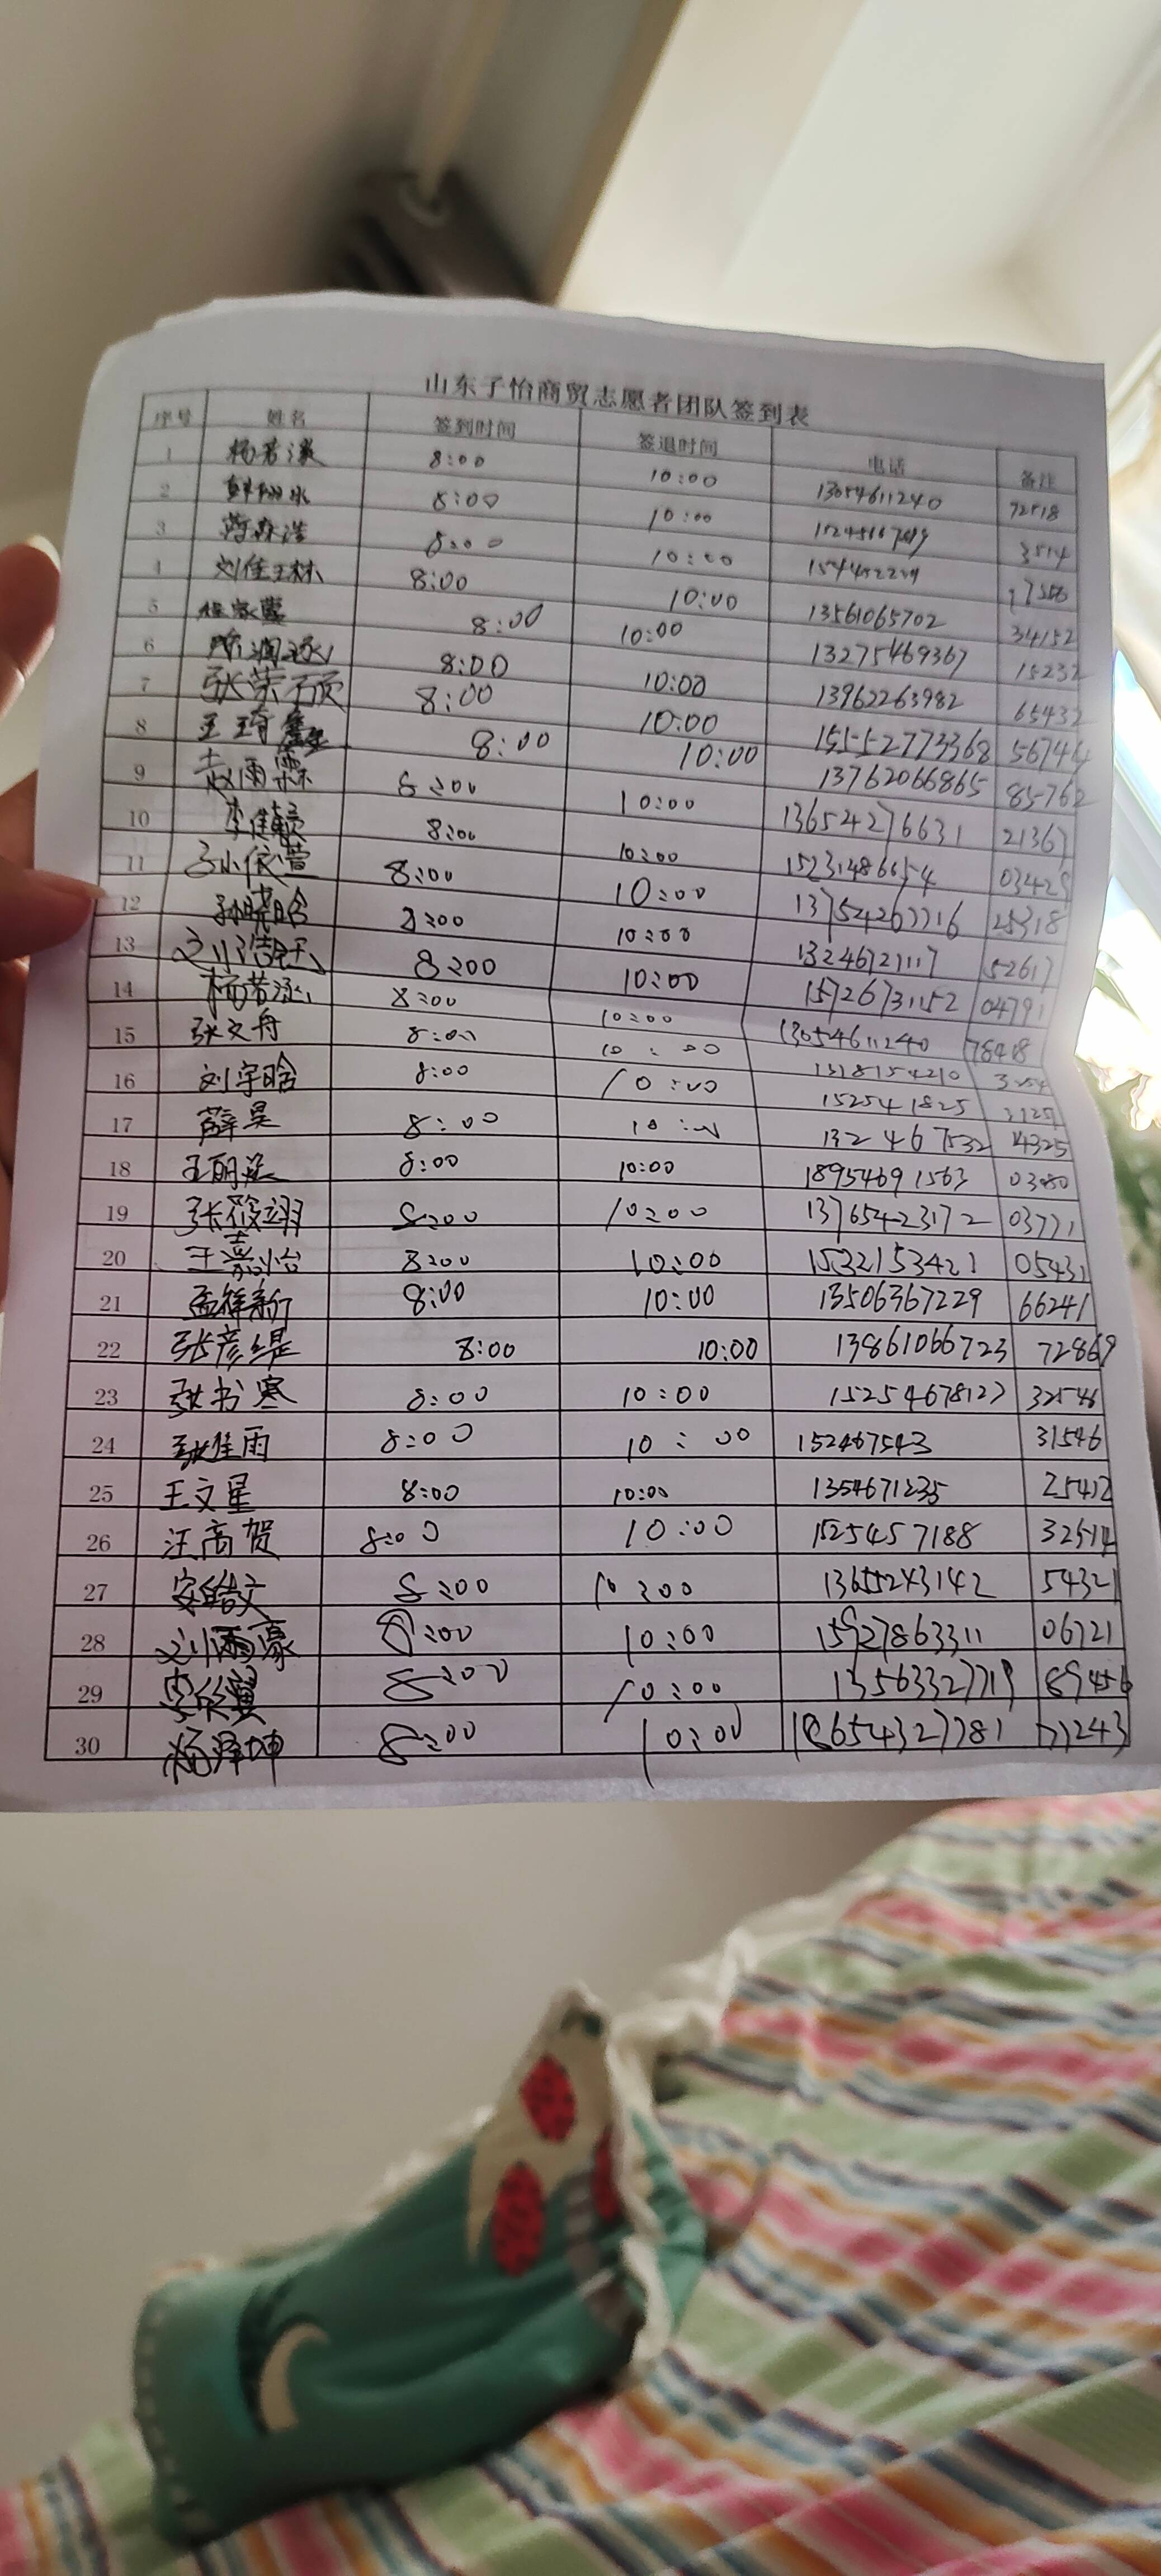 山东子怡商贸志愿者团队签到表
序号 姓名 签到时间 签退时间 电话 备注
1 杨若 8:00 10:00 13054611240
2 8:00 10:00
3 8:00 10:00
4 刘佳琳 8:00 10:00 13561065702 34152
5 8:00 10:00 13275469367 15232
6 8:00 10:00 13962263982 65432
7 张荣硕 8:00 10:00 155552773368 56744
8 王琦鑫 8:00 10:00 13762066865 85762
9 赵雨霖 8:00 10:00 13654276631 21367
10 李佳颖 8:00 10:00 15231486654 03425
11 8:00 10:00 13754267716 25318
12 孙晓晗 8:00 10:00 13246727117 52617
13 刘浩钰 8:00 10:00 15726731152 04791
14 杨若 8:00 10:00 13054611240
15 张文舟 8:00 10:00 1318154210
16 刘宇晗 8:00 10:00 152541825
17 薛昊 8:00 10:00 132467532 4325
18 王 8:00 10:00 18954691563
19 张筱翊 8:00 10:00 13765423172 03771
20 王嘉怡 8:00 10:00 15321153421 05431
21 孟祥新 8:00 10:00 13506367229 66241
22 张彦缇 8:00 10:00 13861066723 72869
23 张书寒 8:00 10:00 15254678127 32546
24 张佳雨 8:00 10:00 152467543 31546
25 王文星 8:00 10:00 1354671235 25412
26 汪高贺 8:00 10:00 1525457188 32514
27 安皓文 8:00 10:00 13655243142 54321
28 刘雨豪 8:00 10:00 15927863311 06721
29 李欣翼 8:00 10:00 13563327719 89456
30 杨泽坤 8:00 10:00 18654327781 77243